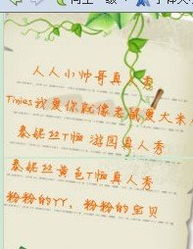 人人小帅哥真人秀
Tinies我爱你就像老鼠爱大米
泰妮丝T恤 游园真人秀
泰妮丝黄色T恤真人秀
粉粉的YY，粉粉的宝贝